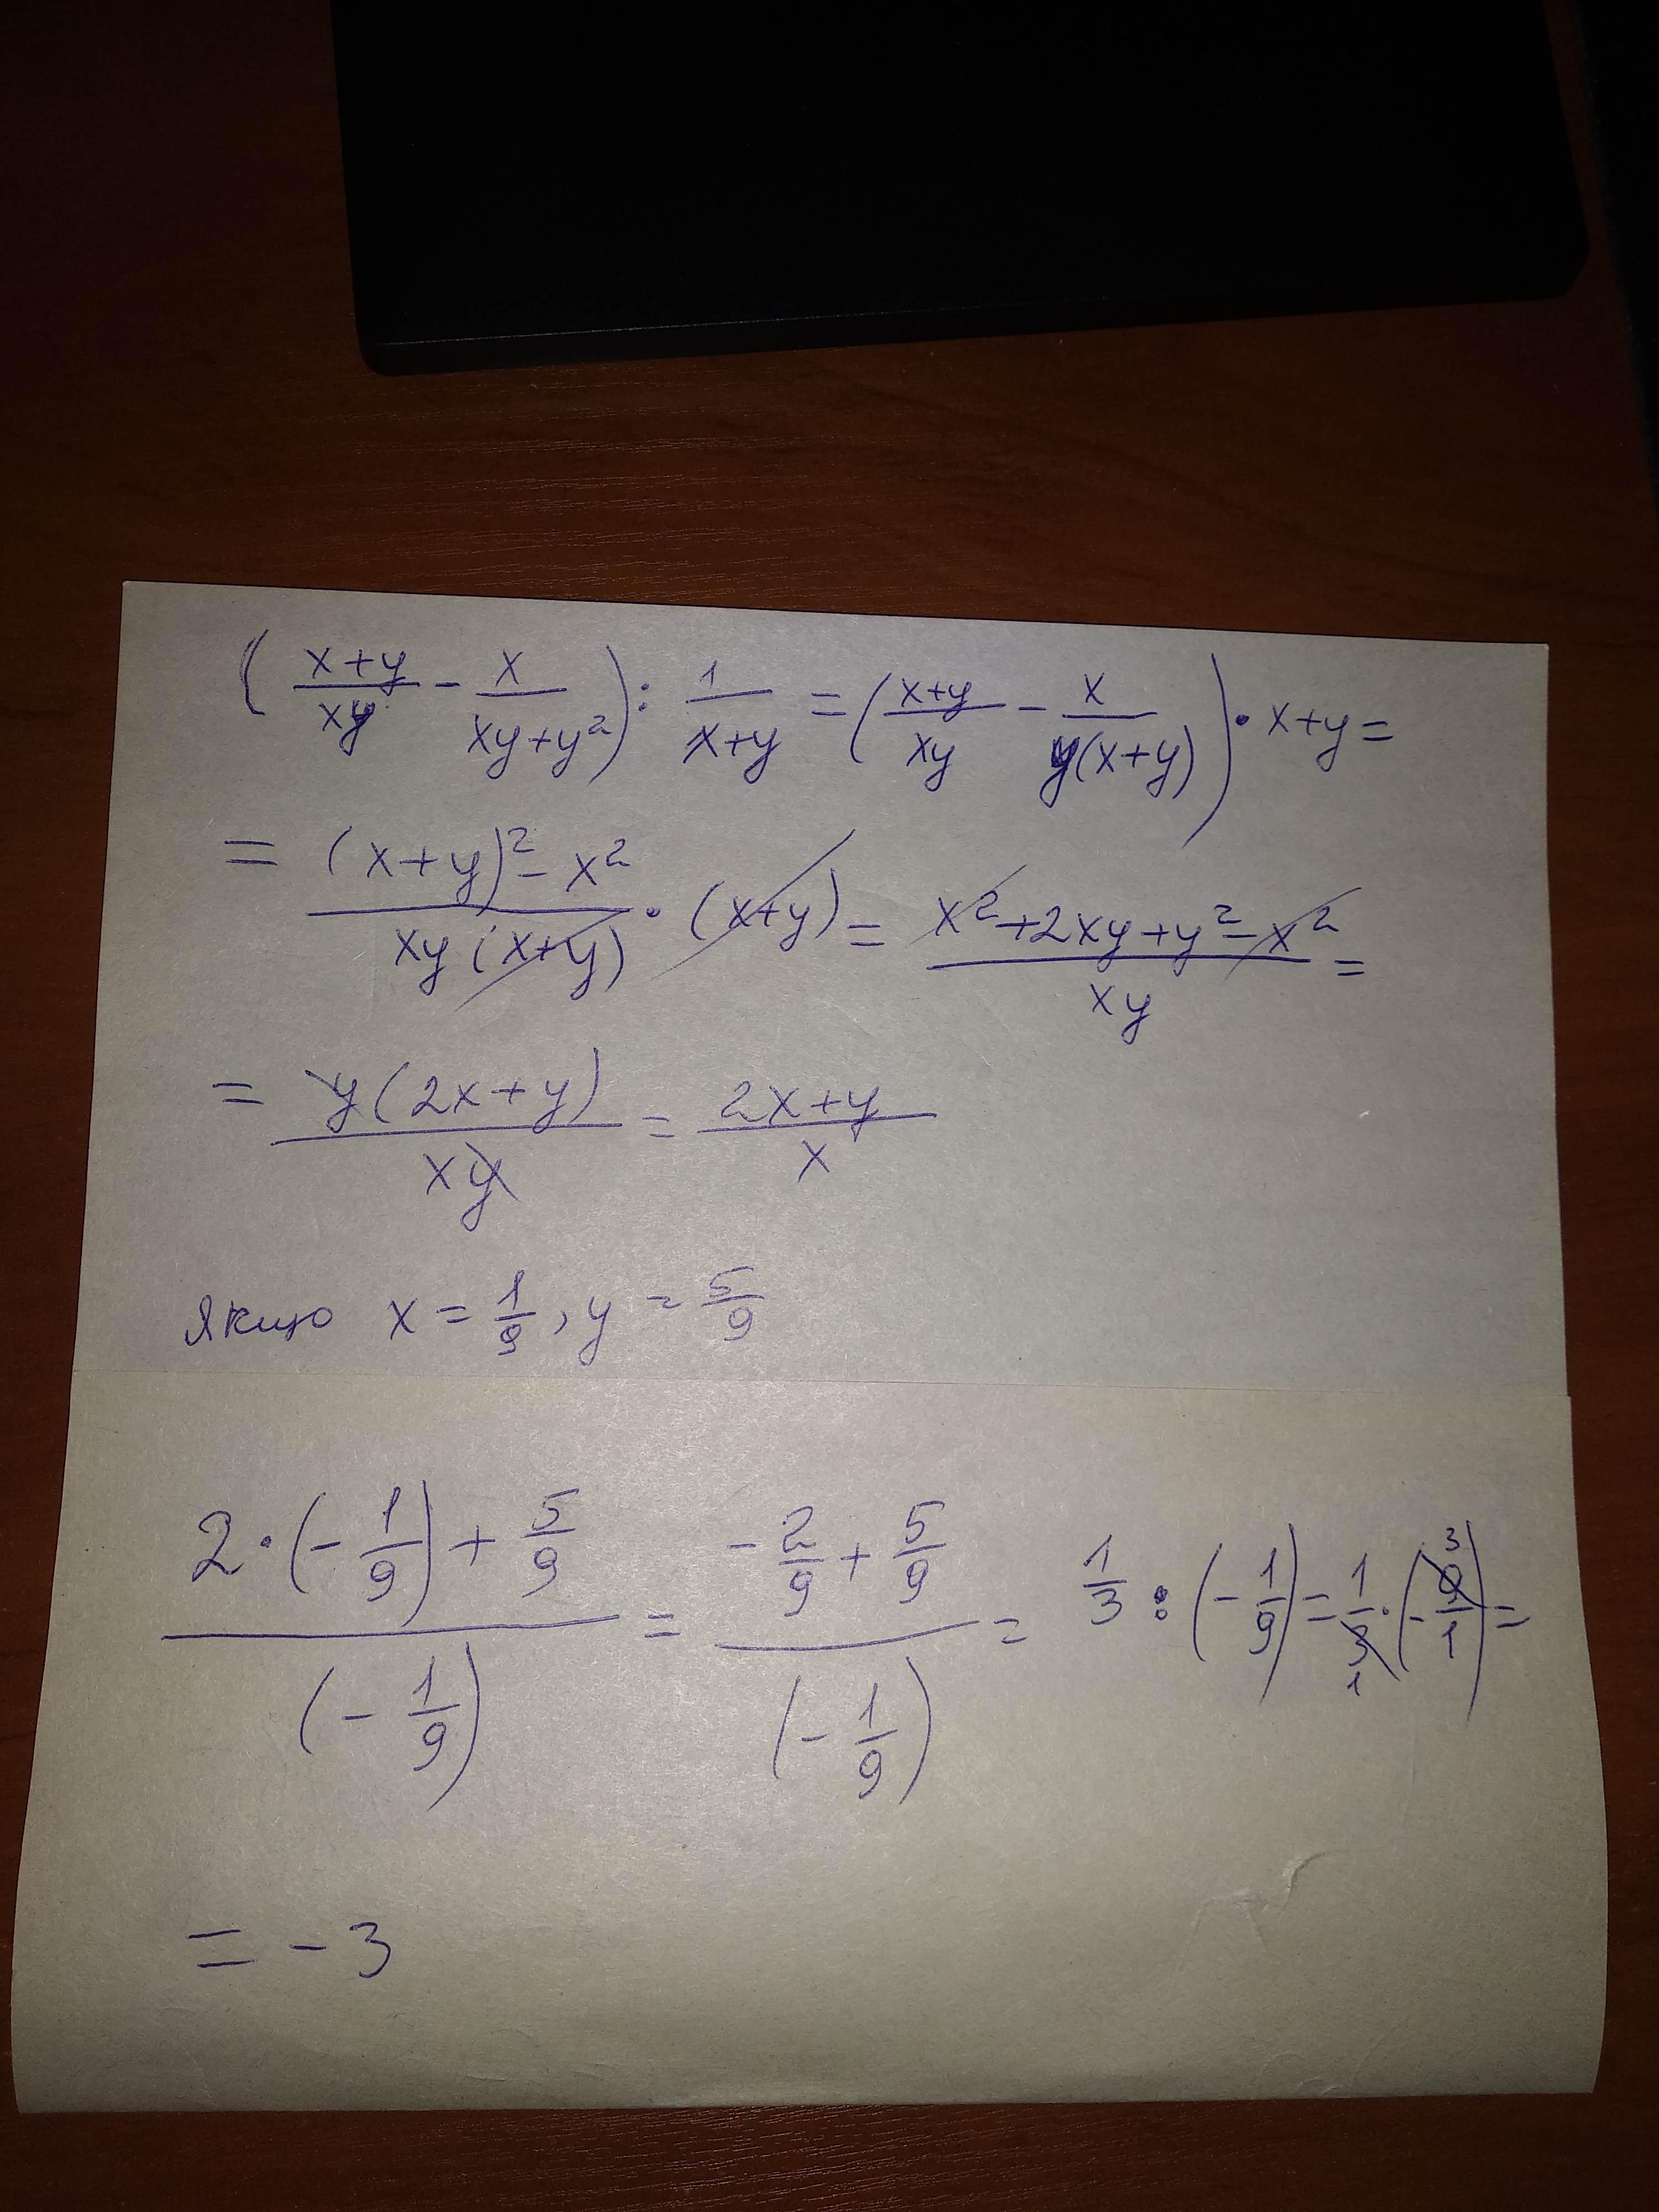 ( (x+y)/(xy) - x/(xy+y²) ) : 1/(x+y) = ( (x+y)/(xy) - x/(y(x+y)) ) · x+y =
= ((x+y)² - x²)/(xy(x+y)) · (x+y) = (x²+2xy+y²-x²)/(xy) =
= y(2x+y)/(xy) = (2x+y)/x
Якщо x = 1/9, y = 5/9
(2·(-1/9) + 5/9)/(-1/9) = (-2/9 + 5/9)/(-1/9) = 1/3 : (-1/9) = 1/3 · (-9/1) =
= -3